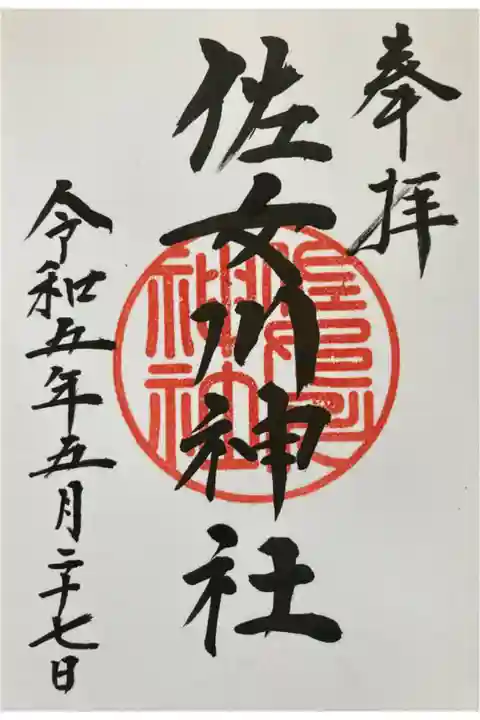 奉拝
佐女川神社
令和五年五月二十七日